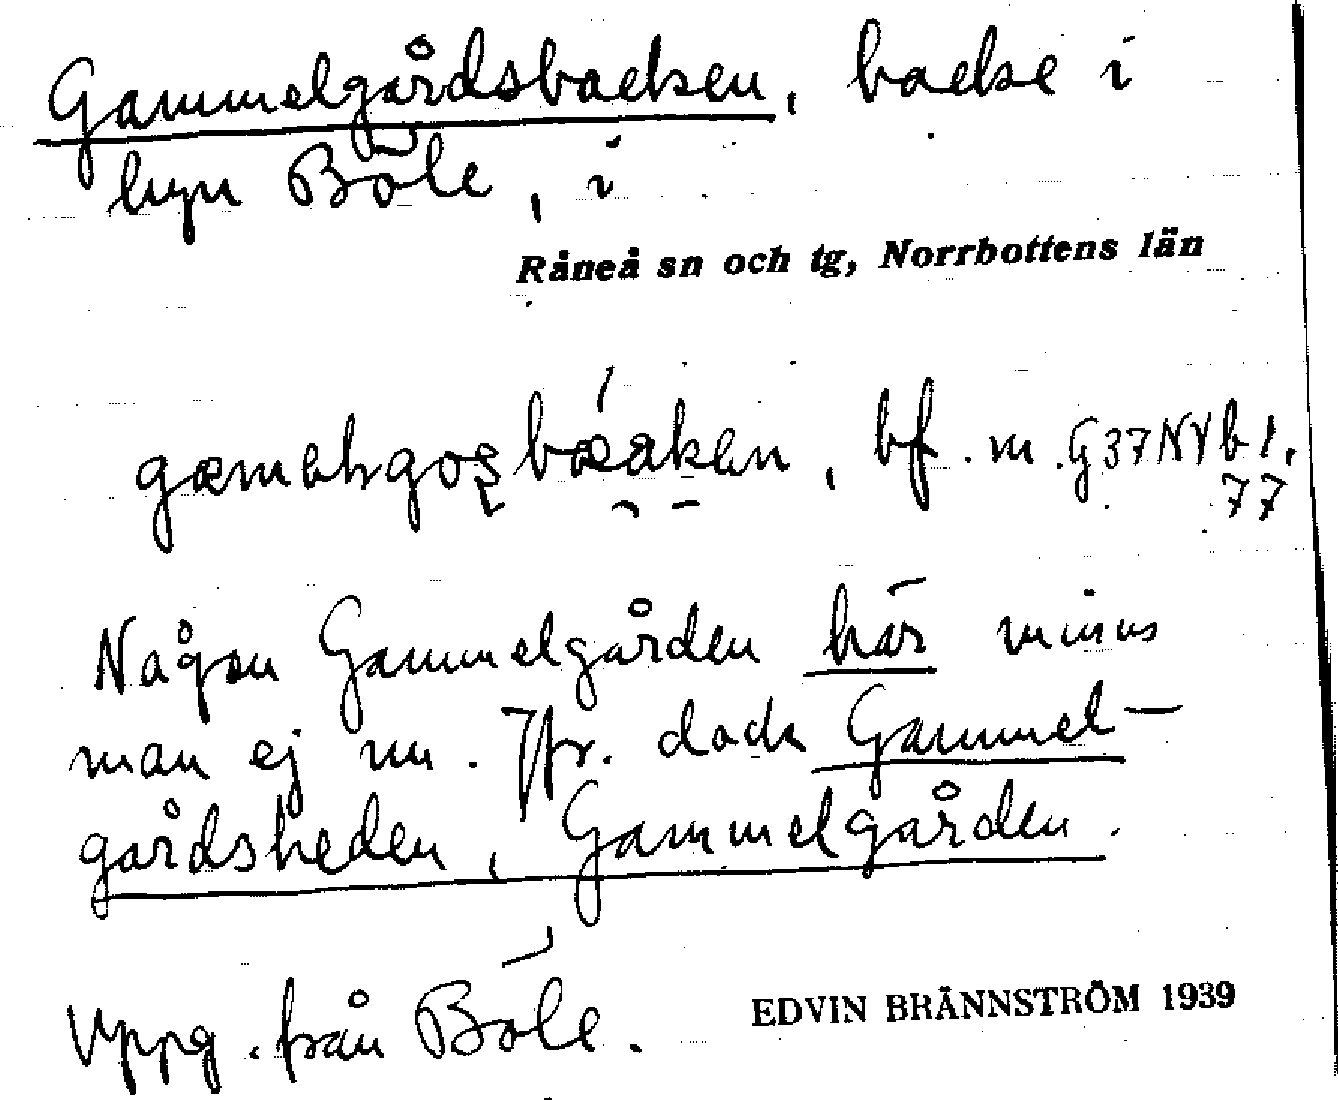 Gammelgårdsbacken, backe i
byn Böle, i
Råneå sn och tg, Norrbottens län
bf. m. G37NVb1,
77
Någon Gammelgården här minns
man ej nu. Jfr. dock Gammel-
gårdsheden, Gammelgården.
Uppg. från Böle.
EDVIN BRÄNNSTRÖM 1939